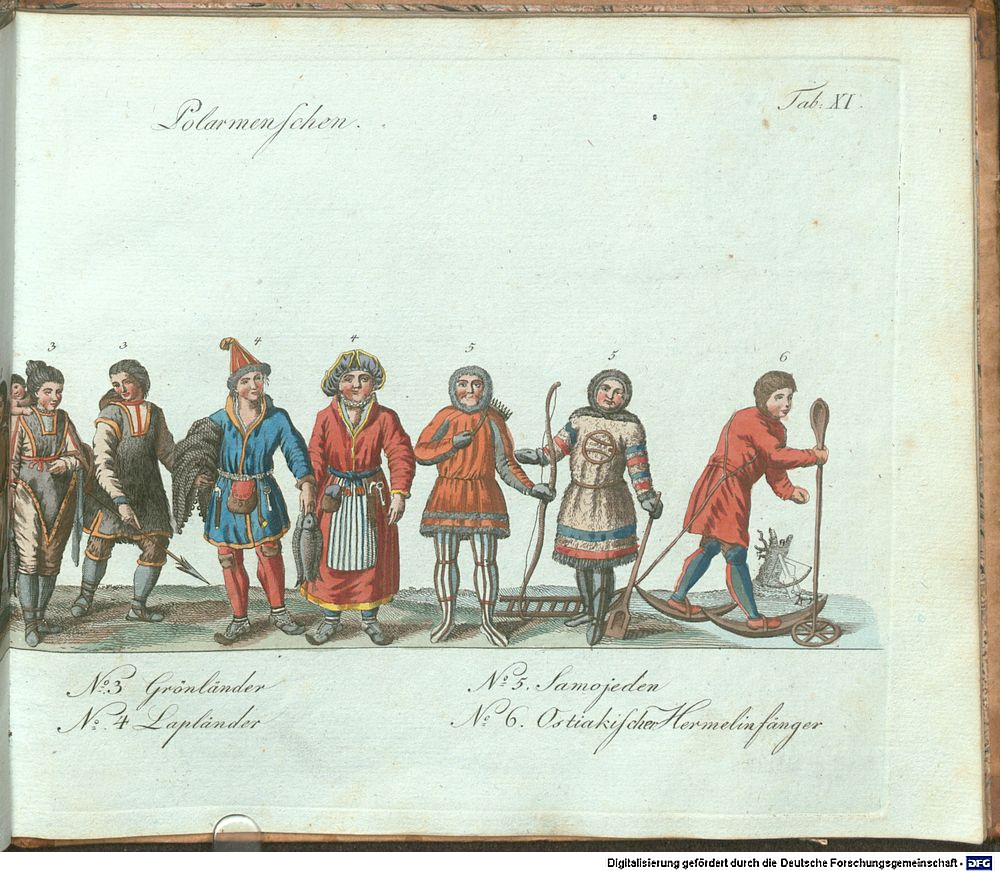 Polarmenſchen.
Tab: XI.
3 3 4 4 5 5 6
No. 3 Grönländer
No. 4 Lapländer
No. 5. Samojeden
No. 6. Ostiakiſcher Hermelinfänger
Digitalisierung gefördert durch die Deutsche Forschungsgemeinschaft - DFG